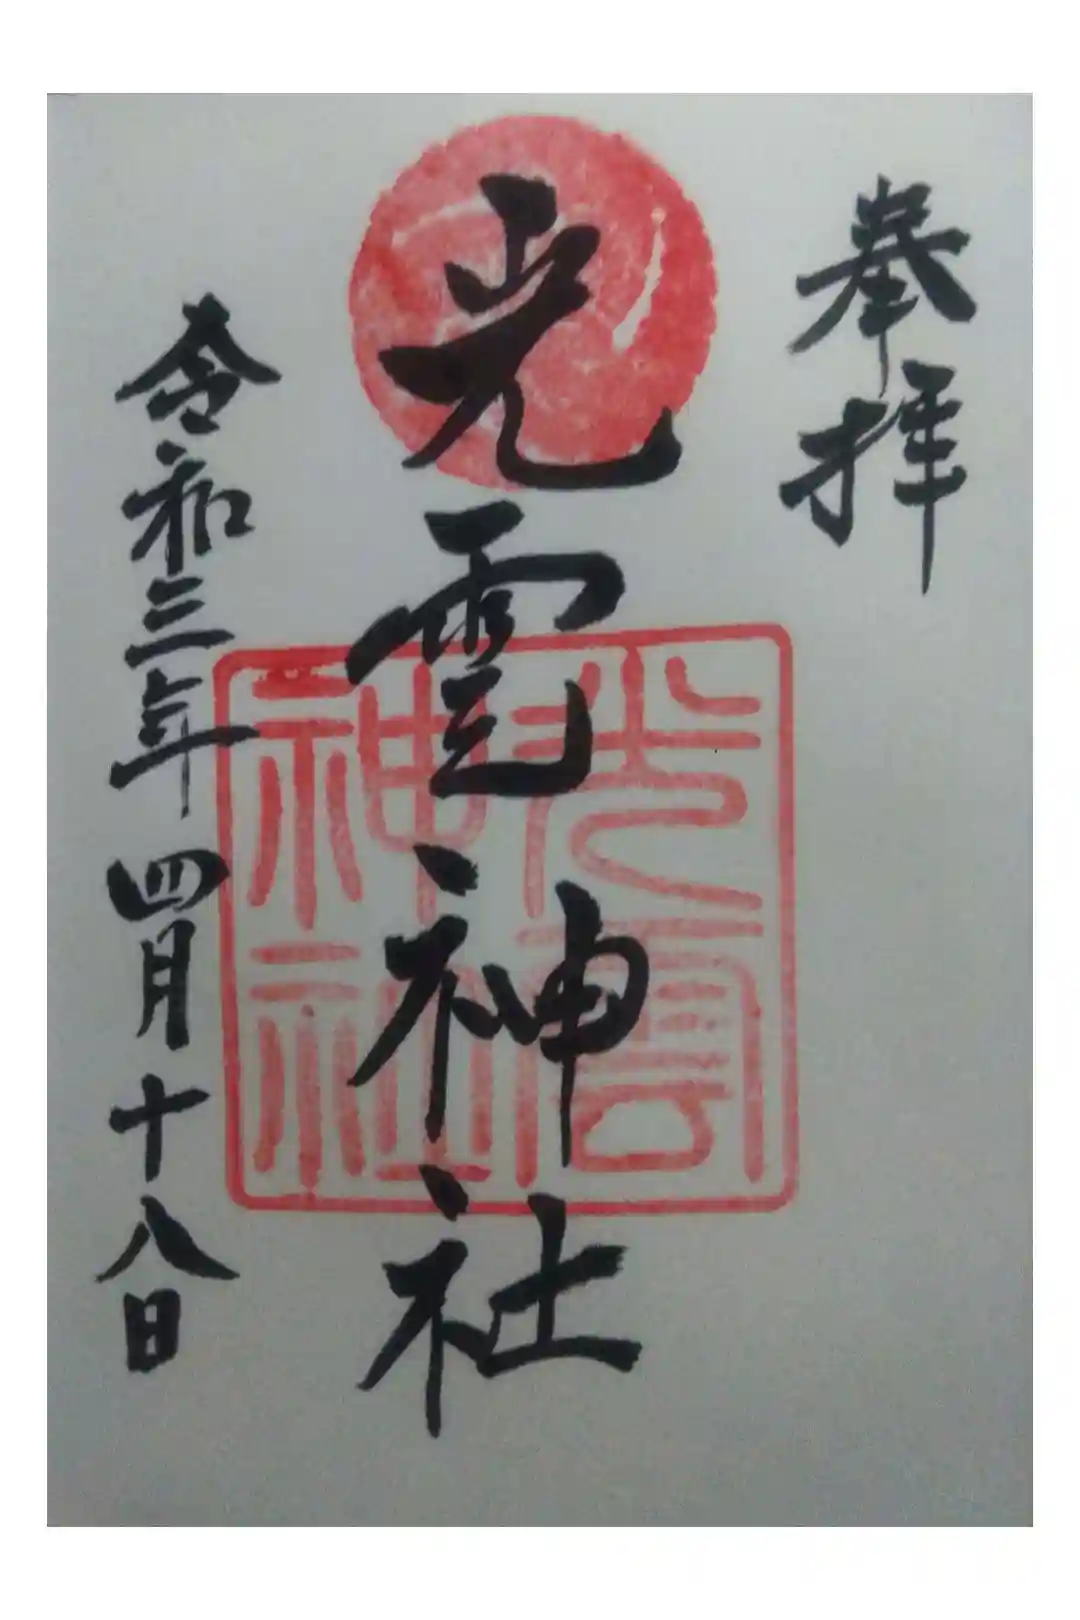 奉拝
光雲神社
光雲神社
令和三年四月十八日